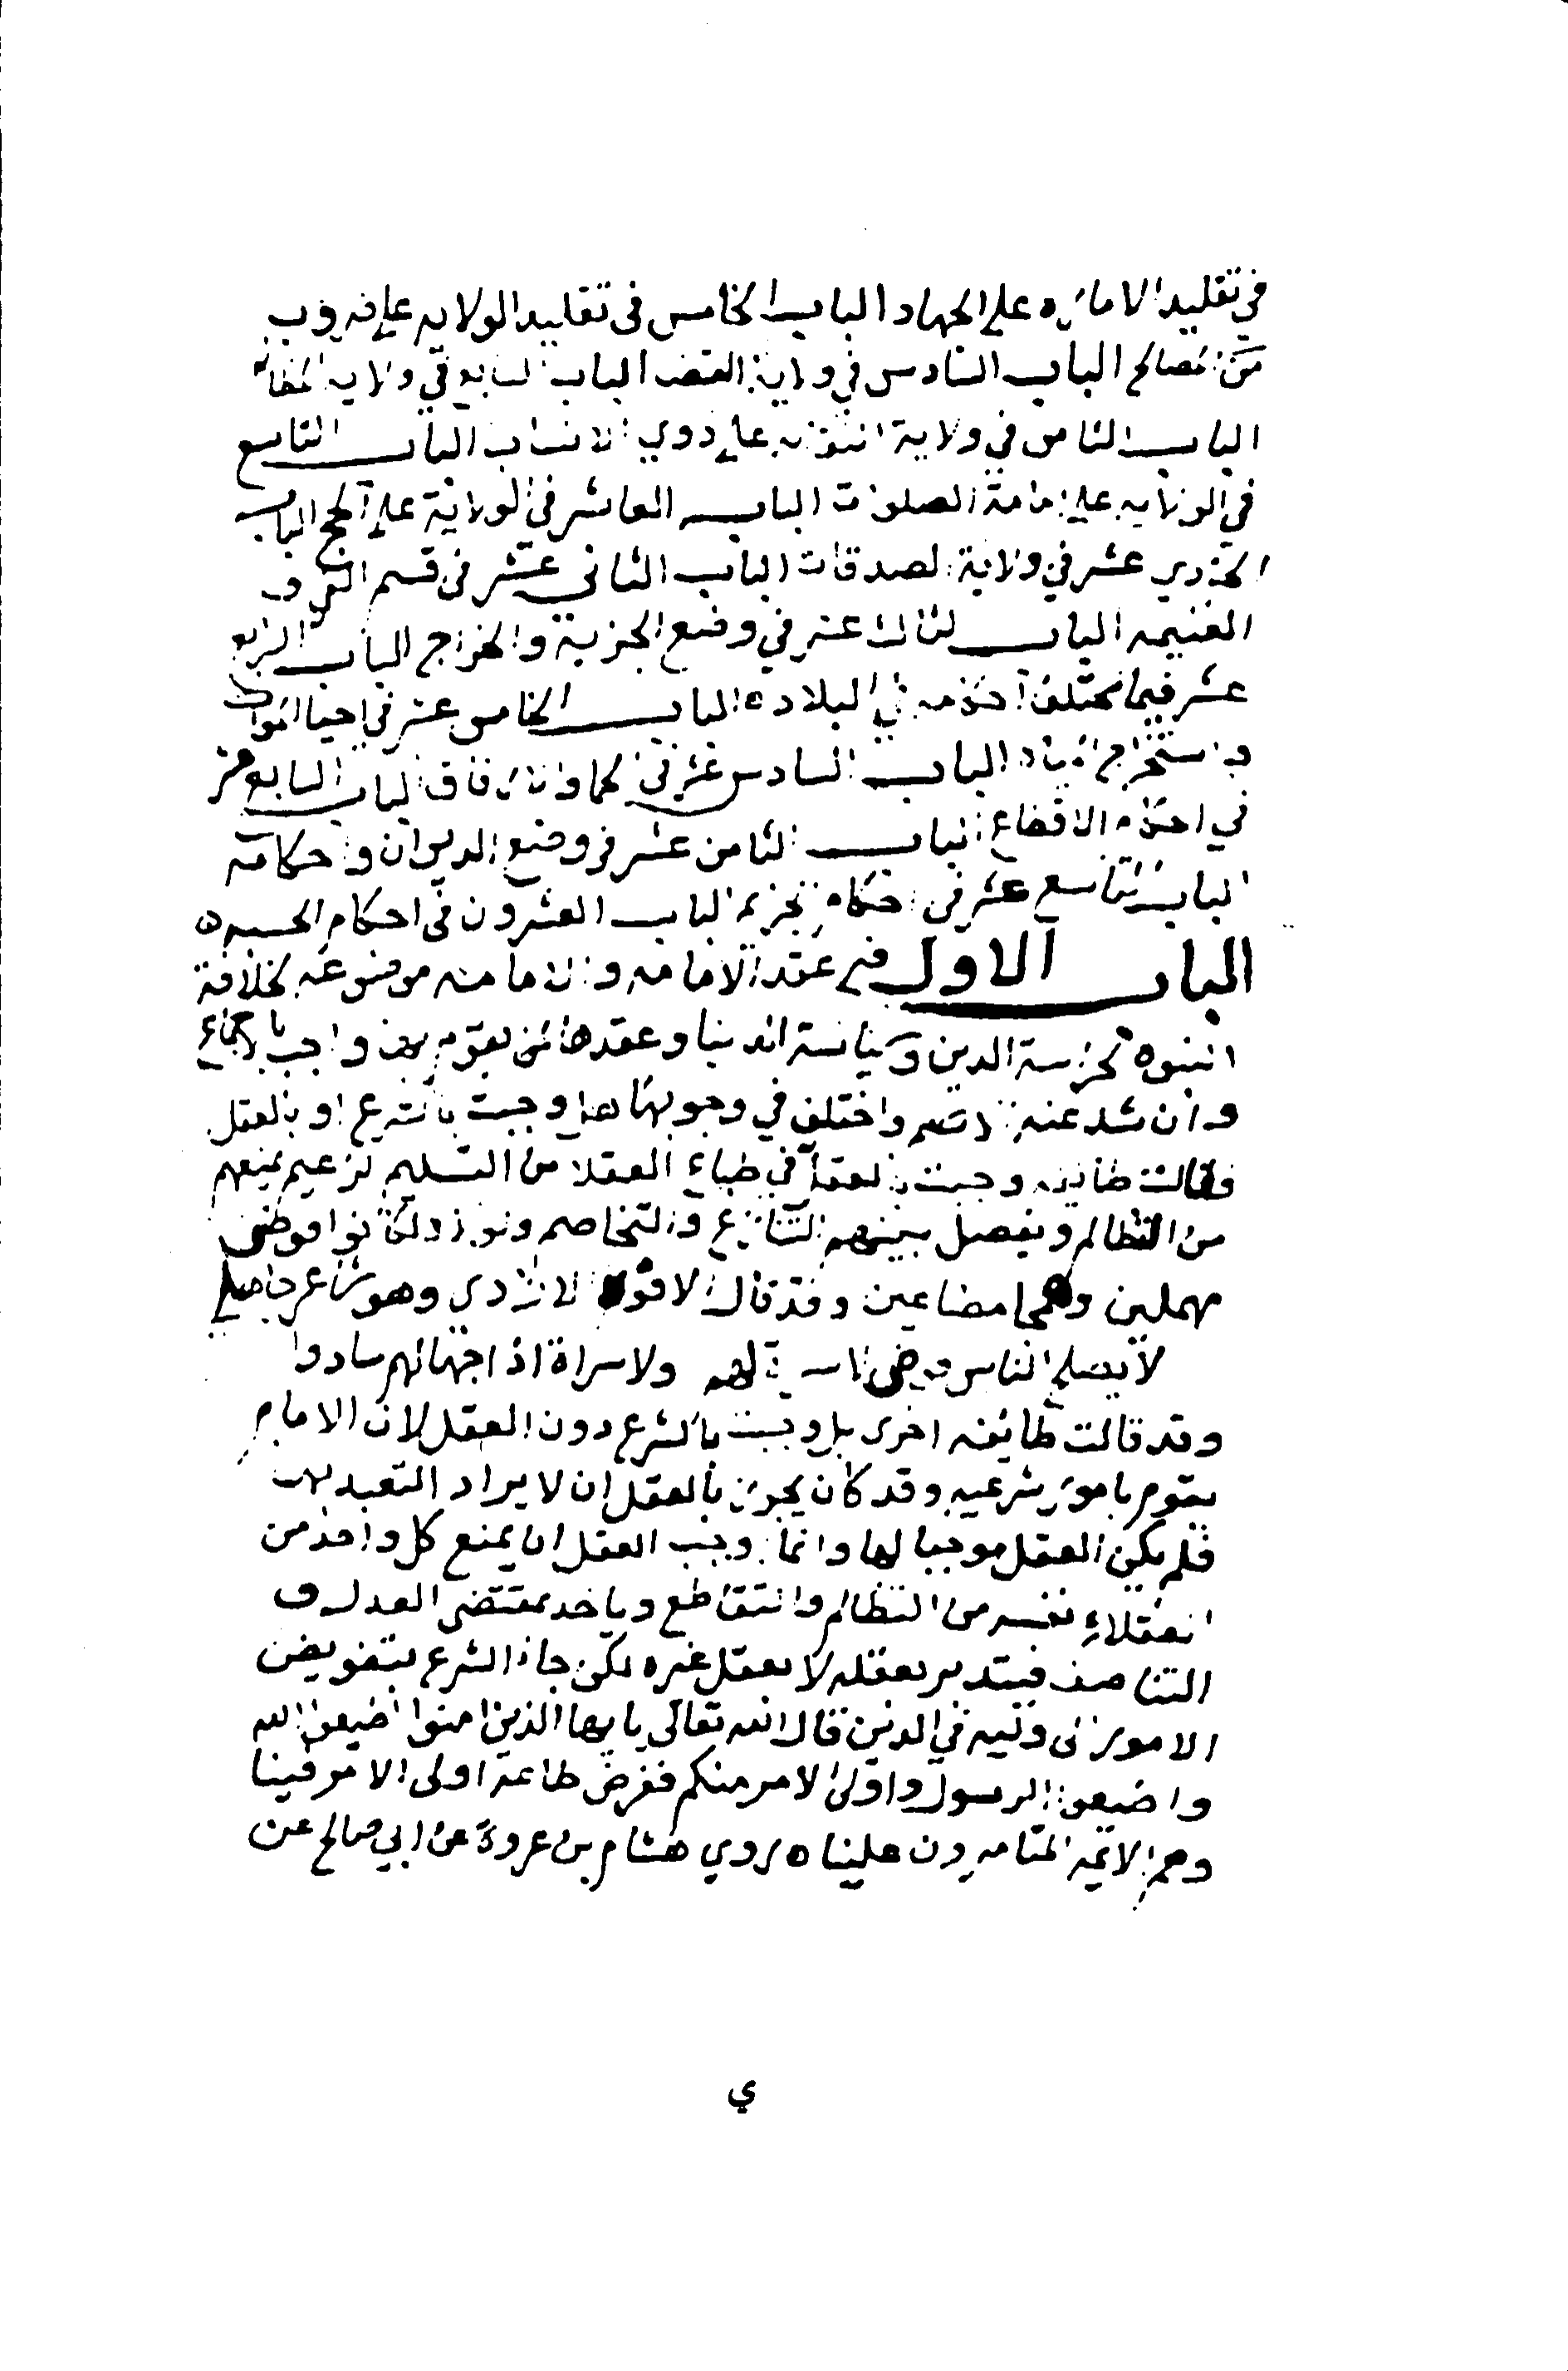 في تقليد الاماره على الجهاد الباب الخامس في تقليد الولايه على ضروب
من المصالح الباب السادس في ولاية القضا الباب السابع في ولاية المظالم
الباب الثامن في ولاية النقابه على ذوي الانساب الباب التاسع
في الولايه على امامة الصلوات الباب العاشر في الولاية على الحج الباب
الحادي عشر في ولاية الصدقات الباب الثاني عشر في قسم الفي و
الغنيمه الباب الثالث عشر في وضع الجزية والخراج الباب الرابع
عشر فيما تختلف احكامه في البلاد ه الباب الخامس عشر في احيا الموات
واستخراج المياه الباب السادس عشر في الحما والارفاق الباب السابع عشر
في احكام الاقطاع الباب الثامن عشر في وضع الديوان واحكامه
الباب التاسع عشر في احكام الجرايم الباب العشرون في احكام الحسبه ه
الباب الاول في عقد الامامه والامامه موضوعه لخلافة
النبوه لحراسة الدين وسياسة الدنيا وعقدها لمن يقوم بها واجب بالاجماع
وان شد عنه الاصم واختلف في وجوبها هل وجبت بالشرع او بالعقل
فقالت طايفه وجبت بالعقل في طباع العقلا من التسليم لزعيم يمنعهم
من التظالم ويفصل بينهم التنازع والتخاصم ولولا ذلك لكانوا فوضى
مهملين وهمجا مضاعين وقد قال الافوه الاودي وهو شاعر جاهلي
لا يصلح الناس فوضى لا سراة لهم ولا سراة اذا جهالهم سادوا
وقد قالت طايفه اخرى بل وجبت بالشرع دون العقل لان الامام
يقوم بامور شرعيه وقد كان يجوز بالعقل ان لا يراد التعبد بها
فلم يكن العقل موجبا لها وانما وجب العقل ان يمنع كل واحد من
العقلاء نفسه من التظالم والتقاطع وياخد بمقتضى العدل و
التناصف فيتدبر بعقله لا بعقل غيره لكن جاء الشرع بتفويض
الامور الى وليه في الدين قال الله تعالى يا يها الذين امنوا اطيعوا الله
واطيعوا الرسول واولى الامر منكم ففرض طاعة اولى الامر فينا
وهم الايمه المتامرون علينا ه روي هشام بن عروة عن ابي صالح عن
ي